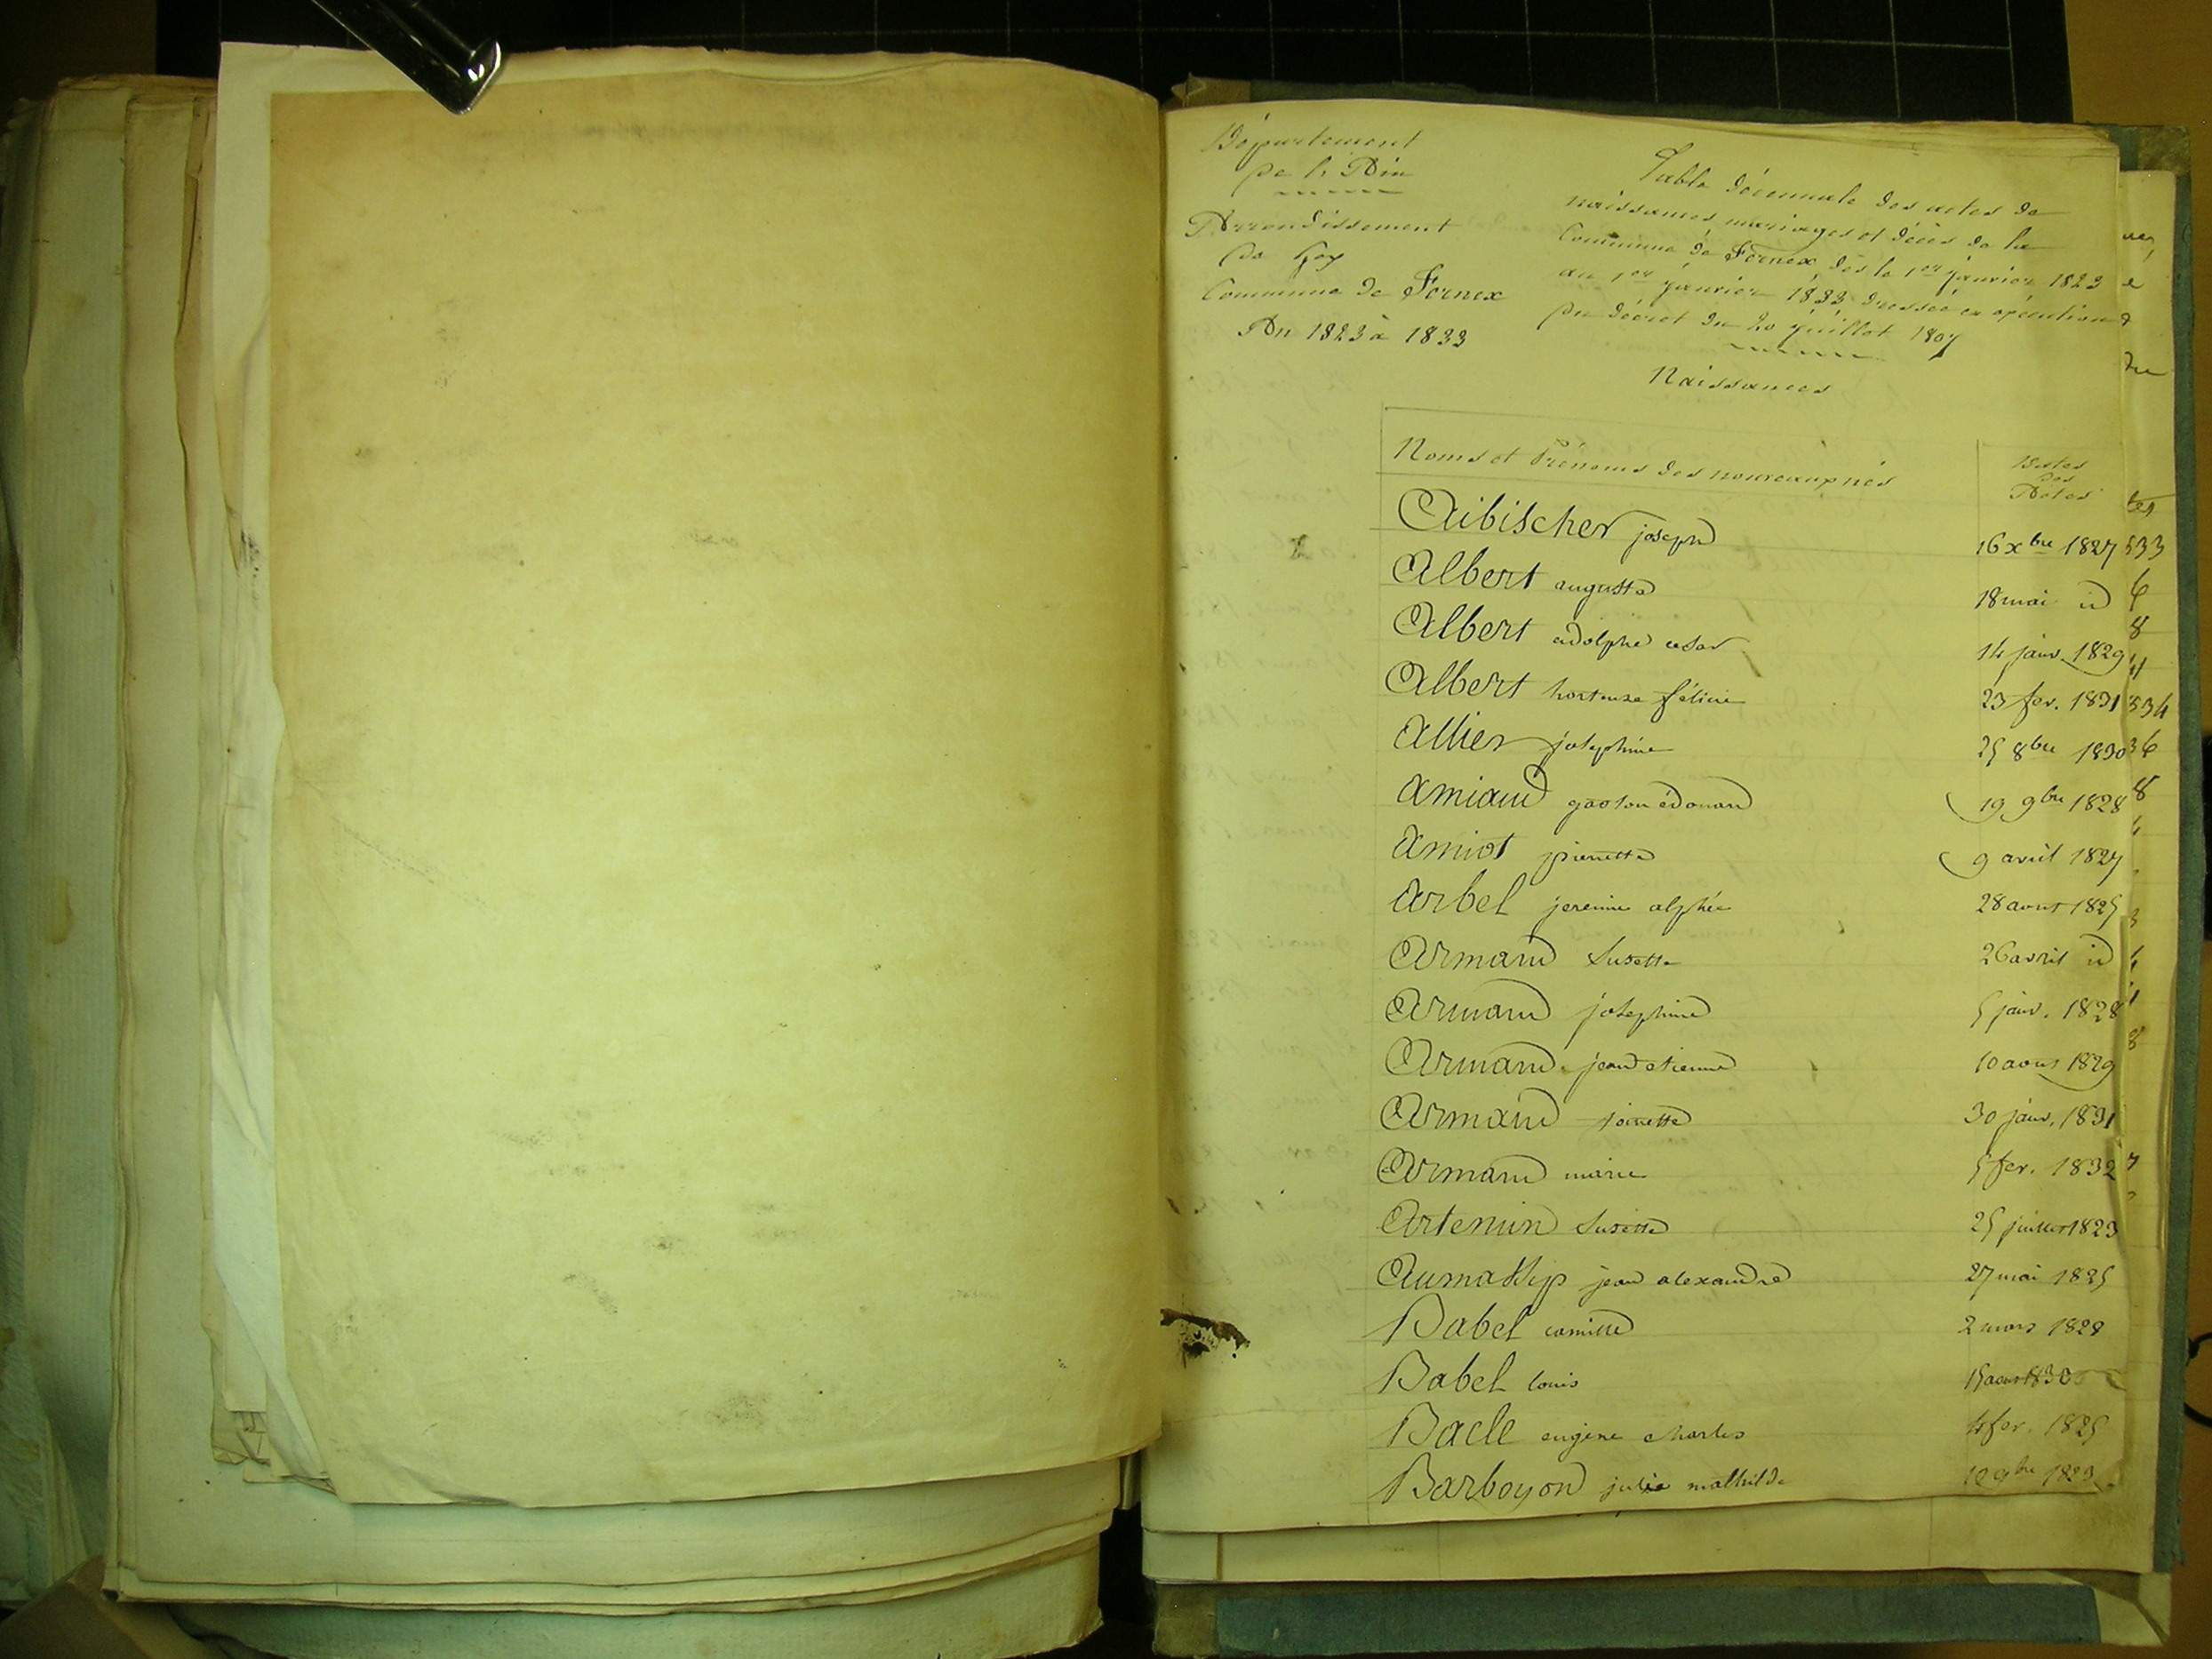 Département
de l'Ain
Arrondissement
de Gex
Commune de Fernex
An 1823 à 1833
Table décennale des actes de
naissances, mariages et décès de la
Commune de Fernex dès le 1er janvier 1823
au 1er janvier 1833 dressée en exécution
du décret du 20 juillet 1807
Naissances
Noms et Prénoms des nouveaux nés
Dates
des
Actes
Aibischer joseph 16 xbre 1827
Albert augusta 18 mai id
Albert adolphe cesar 14 janv. 1829
Albert hortense félicie 23 fev. 1831
Allier josephine 25 8bre 1830
Amiaud gaston édouard 19 9bre 1828
Amiot pierrette 9 avril 1827
Arbel jeremie alphée 28 aout 1825
Armand Susette 26 avril id
Armand josephine 5 janv. 1828
Armand jean etienne 10 aout 1829
Armand 30 janv. 1831
Armand marie 5 fev. 1832
Artemin Susette 25 juillet 1823
jean alexandre 27 mai 1825
Babel camille 2 mars 1828
Babel louis 15 aout 1830
Bacle eugène charles 4 fev. 1825
Barboyon julie mathilde